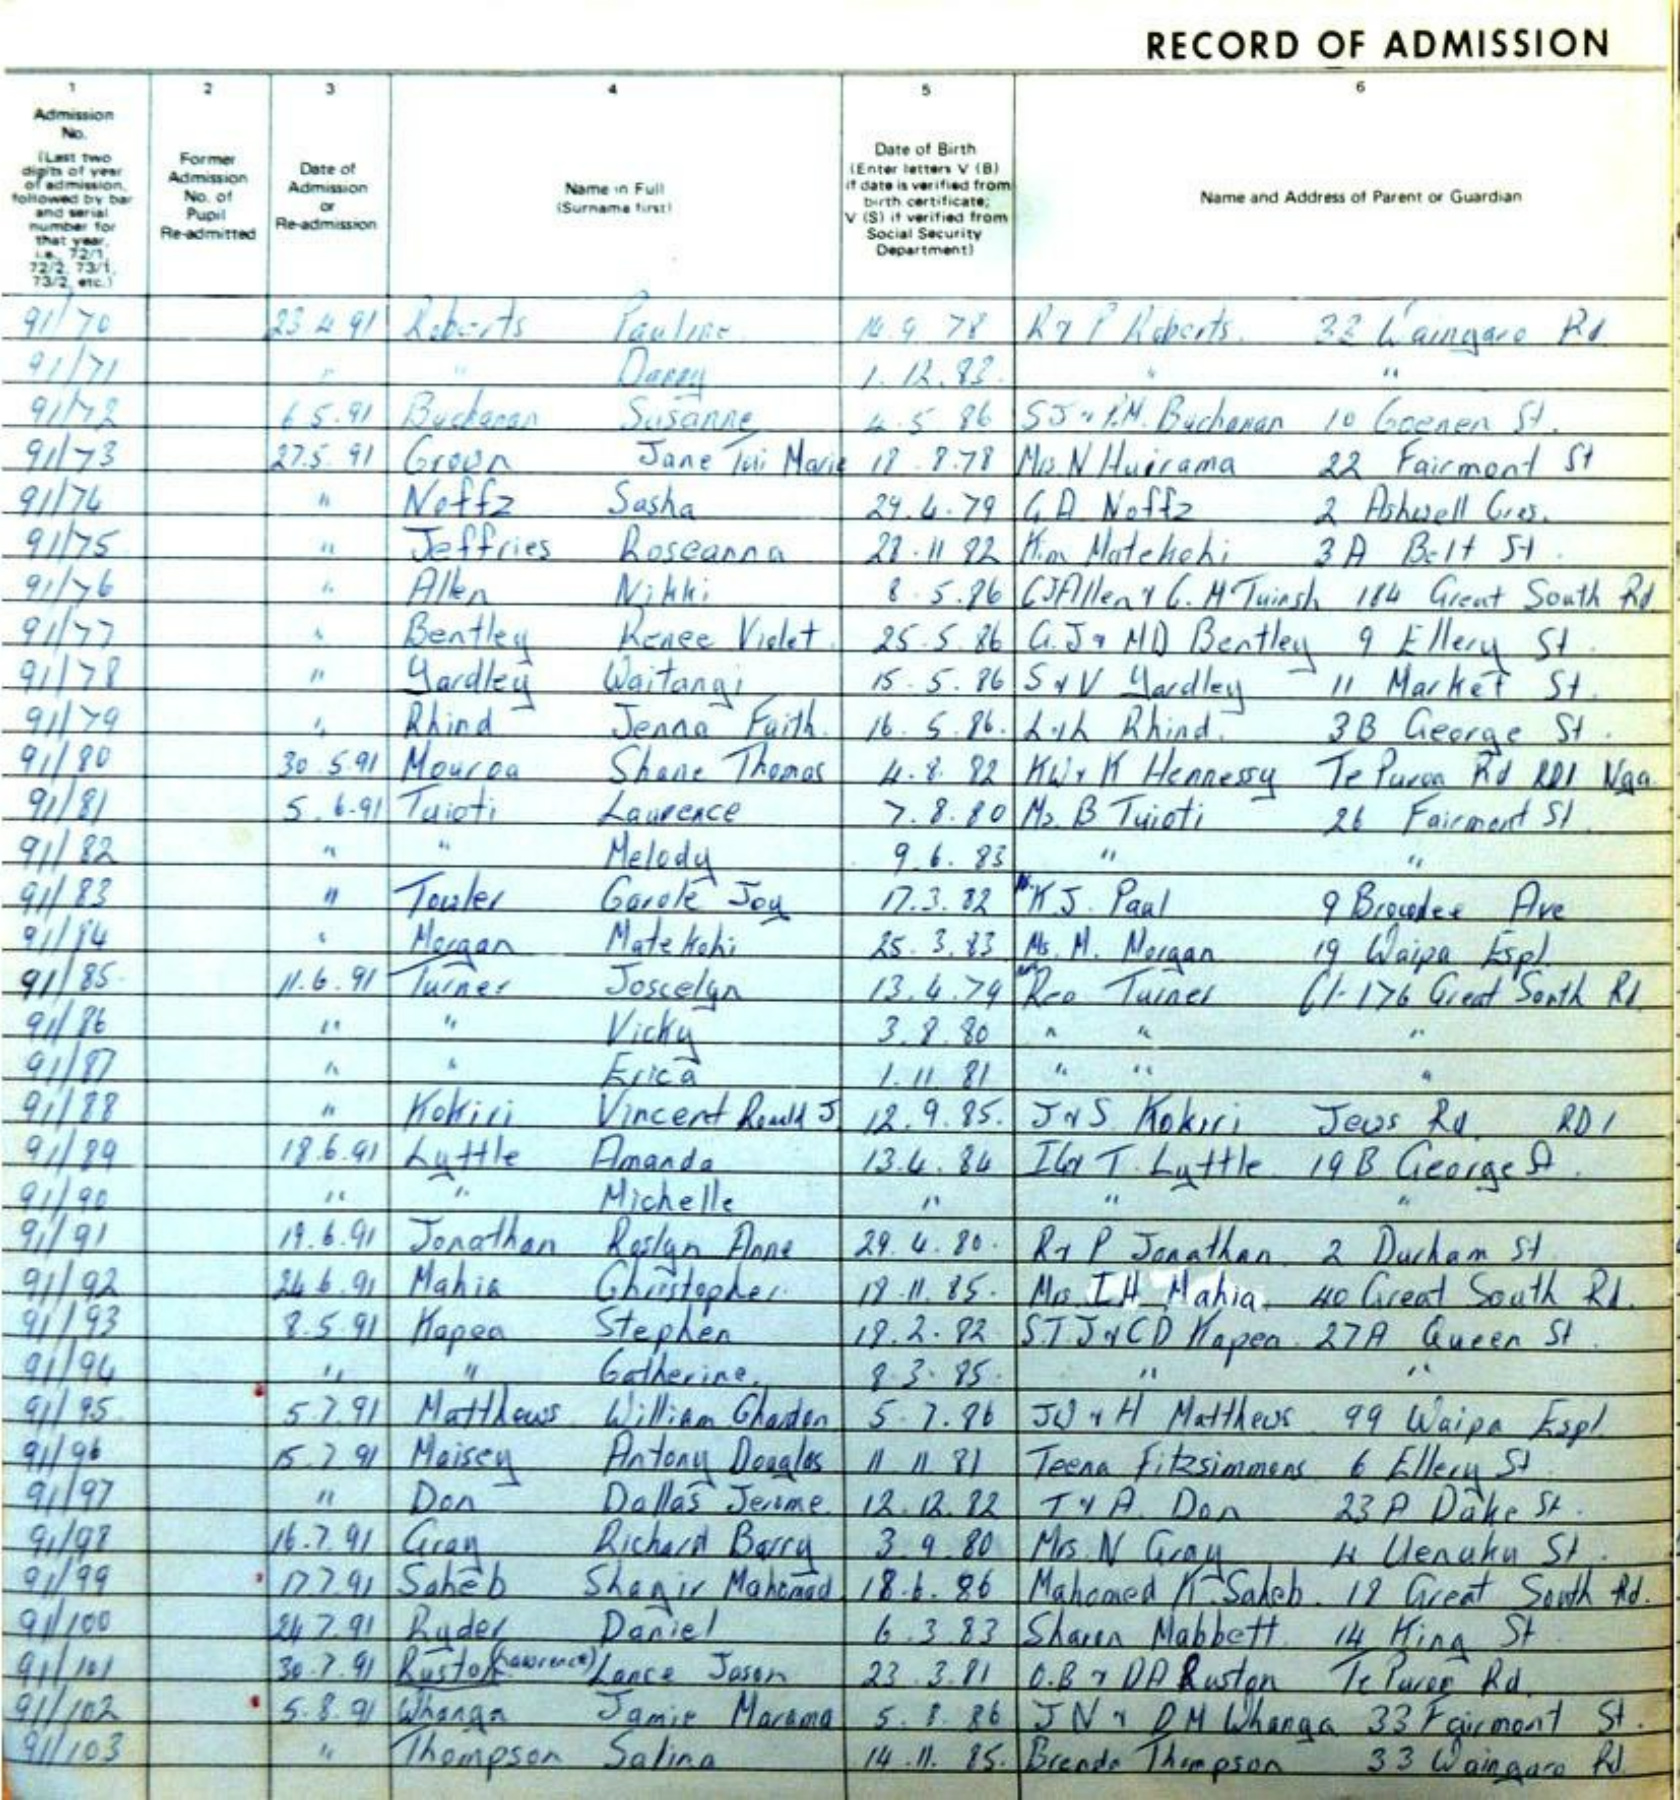 RECORD OF ADMISSION
1 2 3 4 5 6
Admission No. (Last two digits of year of admission, followed by bar and serial number for that year, i.e., 72/1, 72/2, 73/1, 73/2, etc.)
Former Admission No. of Pupil Re-admitted
Date of Admission or Re-admission
Name in Full (Surname first)
Date of Birth (Enter letters V (B) if date is verified from birth certificate; V (S) if verified from Social Security Department)
Name and Address of Parent or Guardian
91/70 23 4 91 Roberts Pauline 14.9.78 R & P Roberts. 33 Waingaro Rd
91/71 " " Danny 1.12.83. " "
91/72 6 5.91 Buchanan Susanne 4.5.86 SJ & P.M. Buchanan 10 Goenen St.
91/73 27.5.91 Green Jane Tui Marie 18.8.78 Ms. N Huirama 22 Fairmont St
91/74 " Noffz Sasha 29.4.79 G A Noffz 2 Ashwell Cres.
91/75 " Jeffries Roseanna 28.11 82 Kim Matekohi 3A Belt St.
91/76 " Allen Nikki 8.5.86 CJ Allen & C. M 184 Great South Rd
91/77 " Bentley Renee Violet 25.5.86 G.J & MD Bentley 9 Ellery St.
91/78 " Yardley Waitangi 15.5.86 S & V Yardley 11 Market St.
91/79 " Rhind Jenna Faith. 16.5.86. L & L Rhind. 3B George St.
91/80 30.5.91 Mouroa Shane Thomas 4.8.82 KW & K Hennessy Te Puroa Rd RD1 Nga.
91/81 5.6.91 Tuioti Laurence 7.8.80 Ms. B Tuioti 26 Fairmont St.
91/82 " " Melody 9.6.83 " "
91/83 " Towler Carole Joy 17.3.82 K.J. Paul 9 Brownlee Ave
91/84 " Morgan Matekohi 25.3.83 Ms. M. Morgan 19 Waipa Espl.
91/85. 11.6.91 Turner Joscelyn 13.4.79 Rea Turner C/- 176 Great South Rd.
91/86 " " Vicky 3.8.80 " " "
91/87 " " Erica 1.11.81 " " "
91/88 " Kokiri Vincent Ronald J 12.9.85. J & S. Kokiri Jews Rd. RD1
91/89 18.6.91 Lyttle Amanda 13.4.84 T. Lyttle. 19B George St.
91/90 " " Michelle " " "
91/91 19.6.91 Jonathan Roslyn Anne 29.4.80. R & P Jonathan. 2 Durham St
91/92 24.6.91 Mahia Christopher. 18.11.85. Mrs I.H. Mahia. 40 Great South Rd.
91/93 8.5.91 Kapea Stephen 18.2.82 S.T.J & CD Kapea. 27A Queen St.
91/94 " " Catherine. 8.3.85. " "
91/95. 5.7.91 Matthews William Ghardon 5.7.86 JW & H Matthews 99 Waipa Espl.
91/96 15.7.91 Maisey Antony Douglas 11 11.81 Teena Fitzsimmons 6 Ellery St
91/97 " Don Dallas Jerome. 12.12.82 T & A. Don 23A Dake St.
91/98 16.7.91 Gray Richard Barry 3.9.80 Mrs. N Gray 4 Uenuku St.
91/99 17.7.91 Saheb Shagir Mahomad 18.6.86 Mahomed K. Saheb. 18 Great South Rd.
91/100 24.7.91 Ryder Daniel 6.3.83 Sharen Mabbett. 14 King St
91/101 30.7.91 Ruston (Lawrence) Lance Jason 23.3.81 O.B & DA Ruston Te Puroa Rd.
91/102 5.8.91 Whanga Jamie Marama 5.8.86 J N & D M Whanga 33 Fairmont St.
91/103 " Thompson Salina 14.11.85. Brenda Thompson 33 Waingaro Rd.